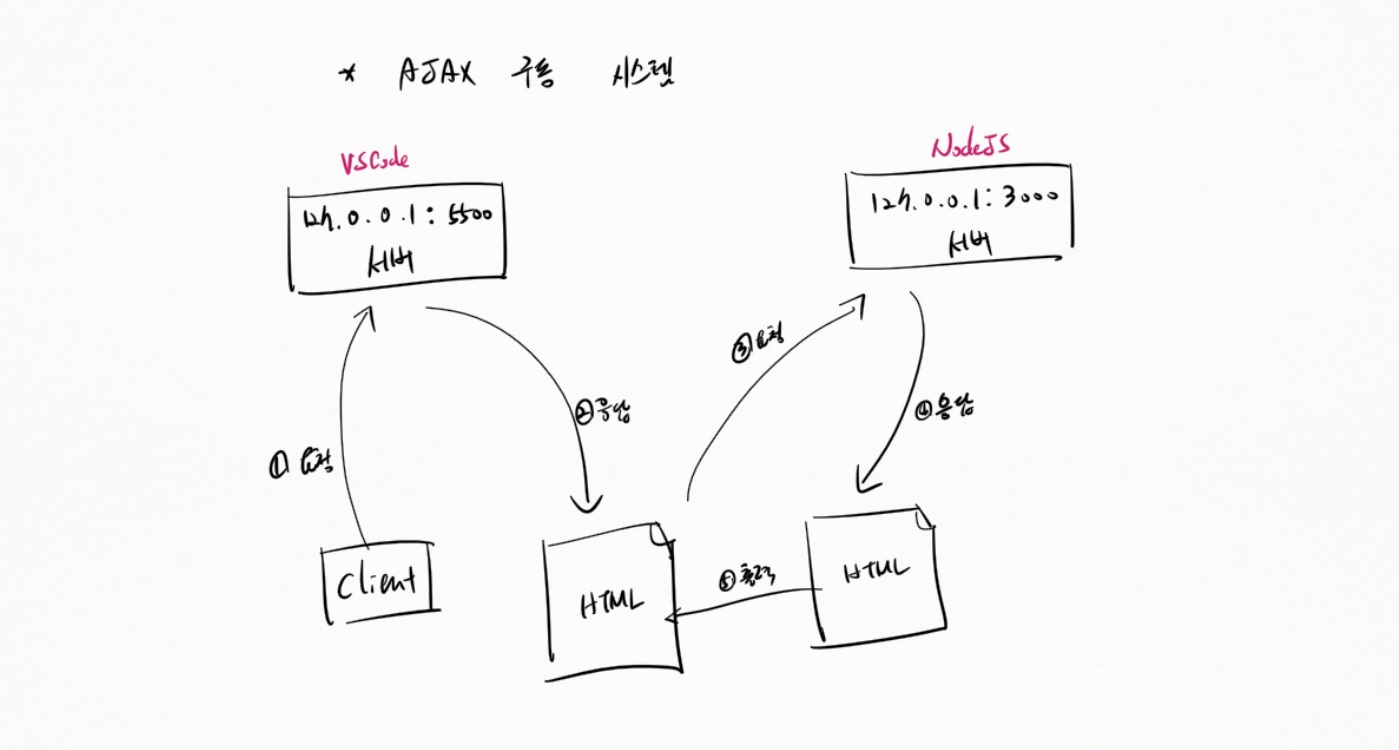 * AJAX 구동 시스템
VSCode
127.0.0.1 : 5500
서버
NodeJS
127.0.0.1 : 3000
서버
① 요청
② 응답
③ 요청
④ 응답
⑤ 출력
Client
HTML
HTML